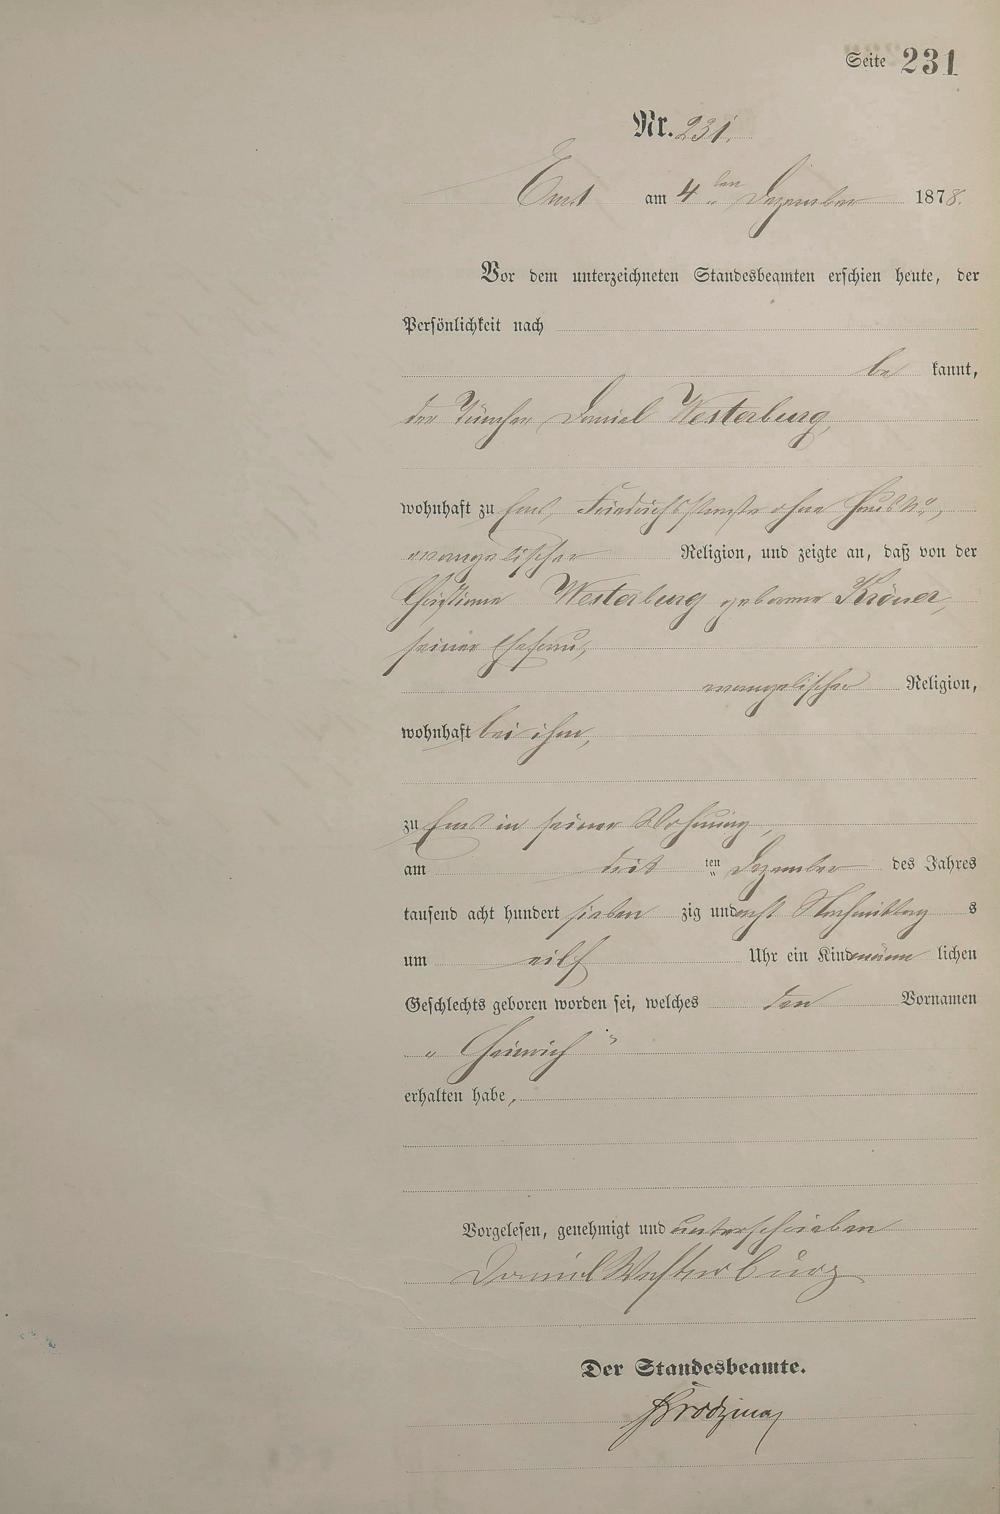 Seite 231
Nr. 231.
Ems am 4 ten Dezember 1878.
Vor dem unterzeichneten Standesbeamten erschien heute, der
Persönlichkeit nach
be kannt,
der Tüncher Daniel Westerburg,
wohnhaft zu Ems, Friedrichsstraße ohne Haus No,
evangelischer Religion, und zeigte an, daß von der
Christiane Westerburg geborene Kröner,
seiner Ehefrau,
evangelischer Religion,
wohnhaft bei ihm,
zu Ems in seiner Wohnung,
am drit ten Dezember des Jahres
tausend acht hundert sieben zig und acht Nachmittag s
um eilf Uhr ein Kind männ lichen
Geschlechts geboren worden sei, welches den Vornamen
„Heinrich"
erhalten habe,
Vorgelesen, genehmigt und unterschrieben
Daniel Westerburg
Der Standesbeamte.